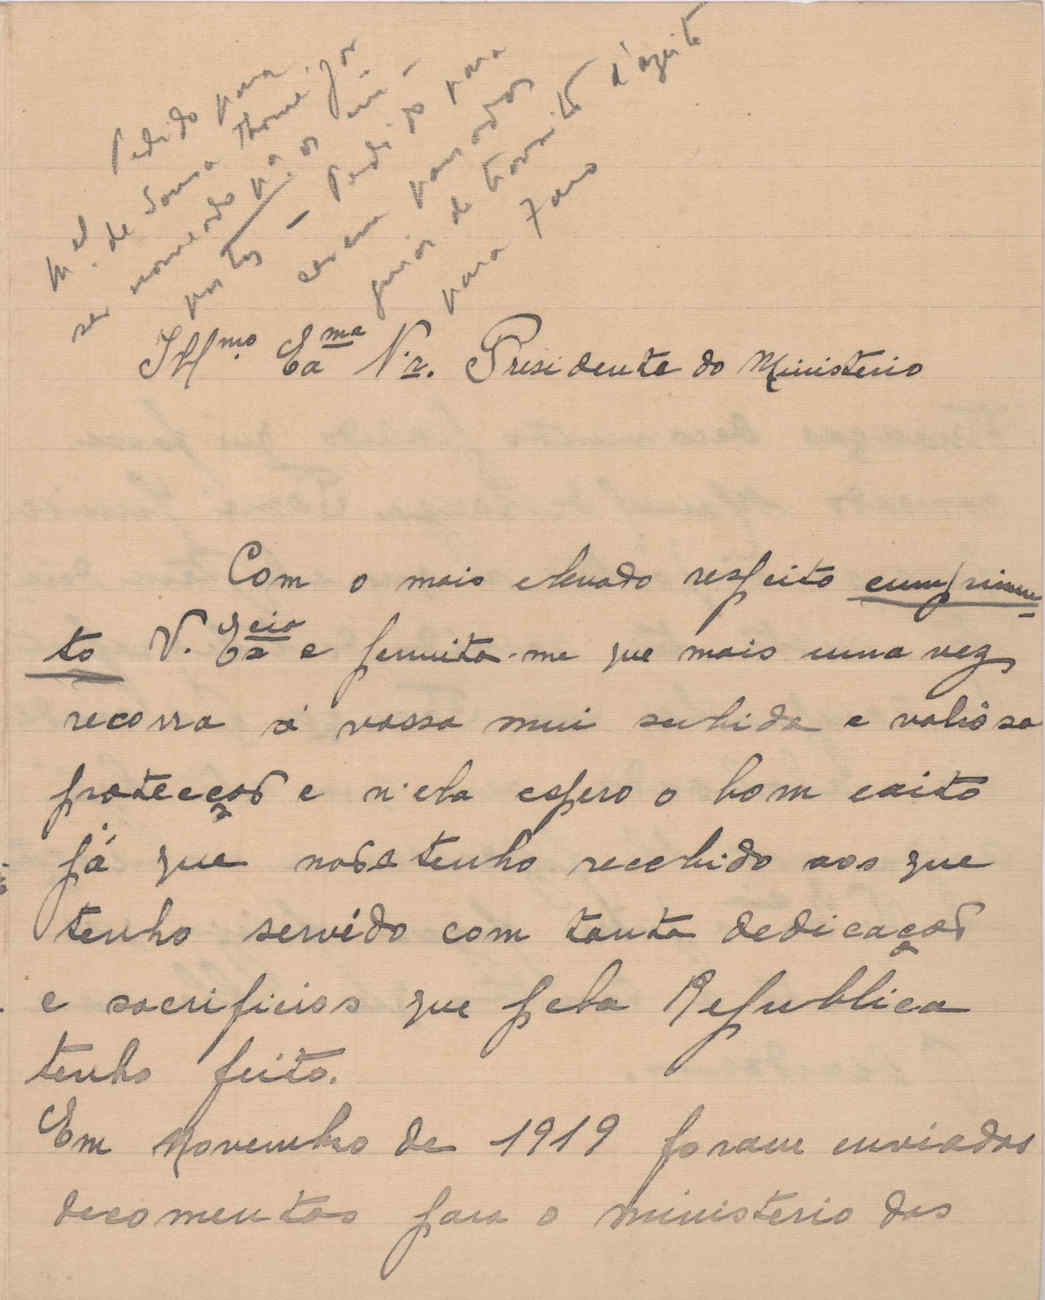 Pedido para
M.el de Sousa Thomé, p.a
ser nomeado p.a os im-
postos — Pedido para
serem passados
guias de transito d'azeite
para 7 ano
Ill.mo Ex.ma Nr. Presidente do Ministerio
Com o mais elevado respeito cumprimen-
to V. Ex.cia e permita-me que mais uma vez
recorra á vossa mui subida e valiosa
protecção e n'ela espero o bom exito
já que não o tenho recebido aos que
tenho servido com tanta dedicação
e sacrificios que pela Republica
tenho feito.
Em Novembro de 1919 foram enviados
decomentos para o ministerio das